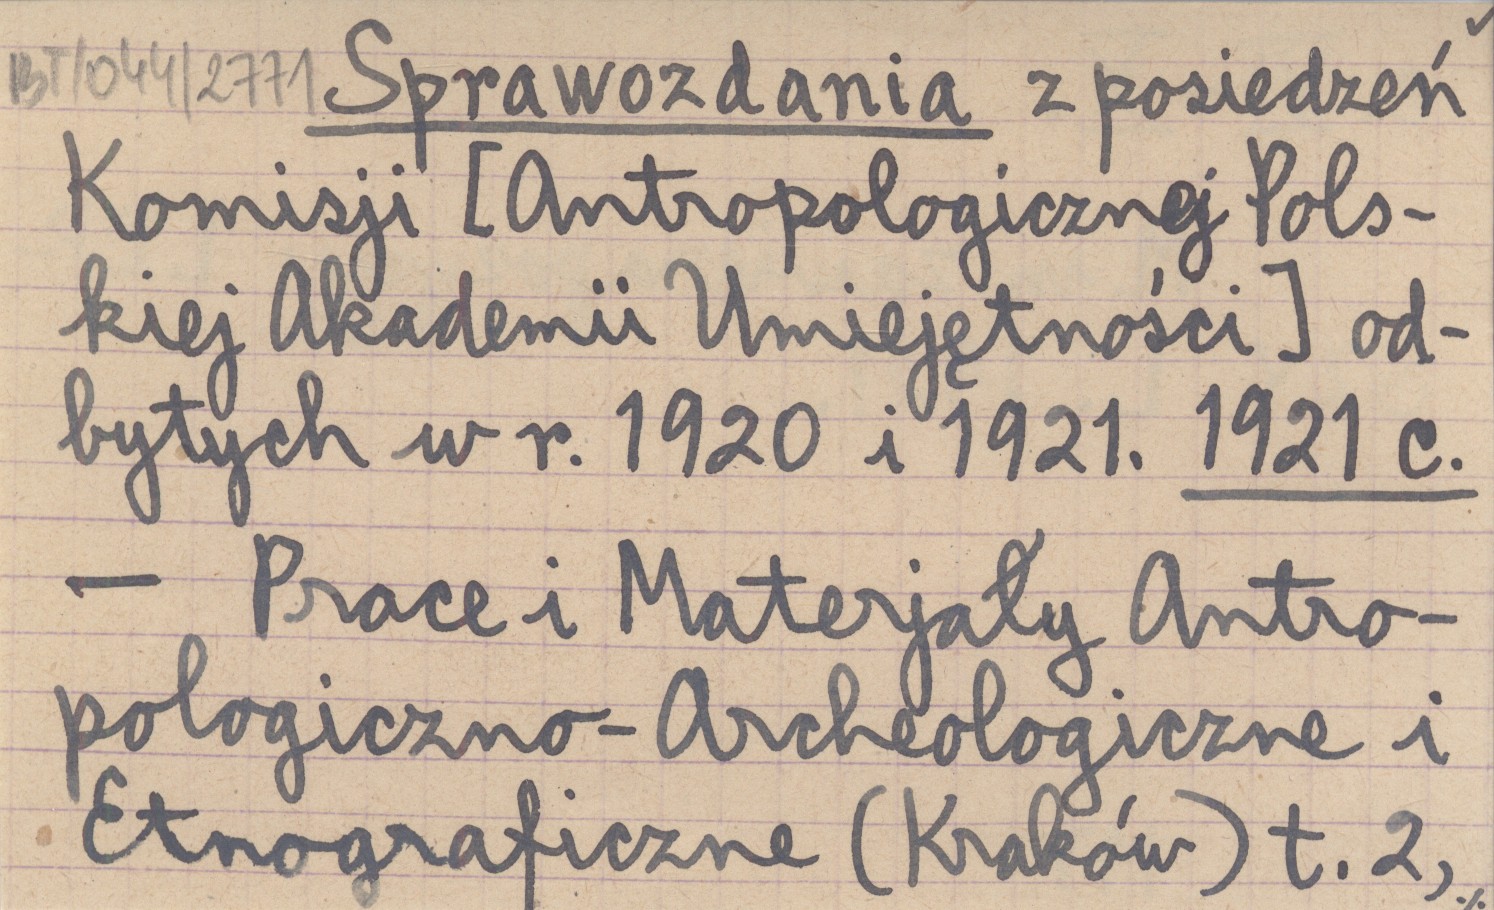 BT/044/2771 Sprawozdania z posiedzeń
Komisji [Antropologicznej Pols-
kiej Akademii Umiejętności] od-
bytych w r. 1920 i 1921. 1921 c.
— Prace i Materjały Antro-
pologiczno-Archeologiczne i
Etnograficzne (Kraków) t. 2,
./.